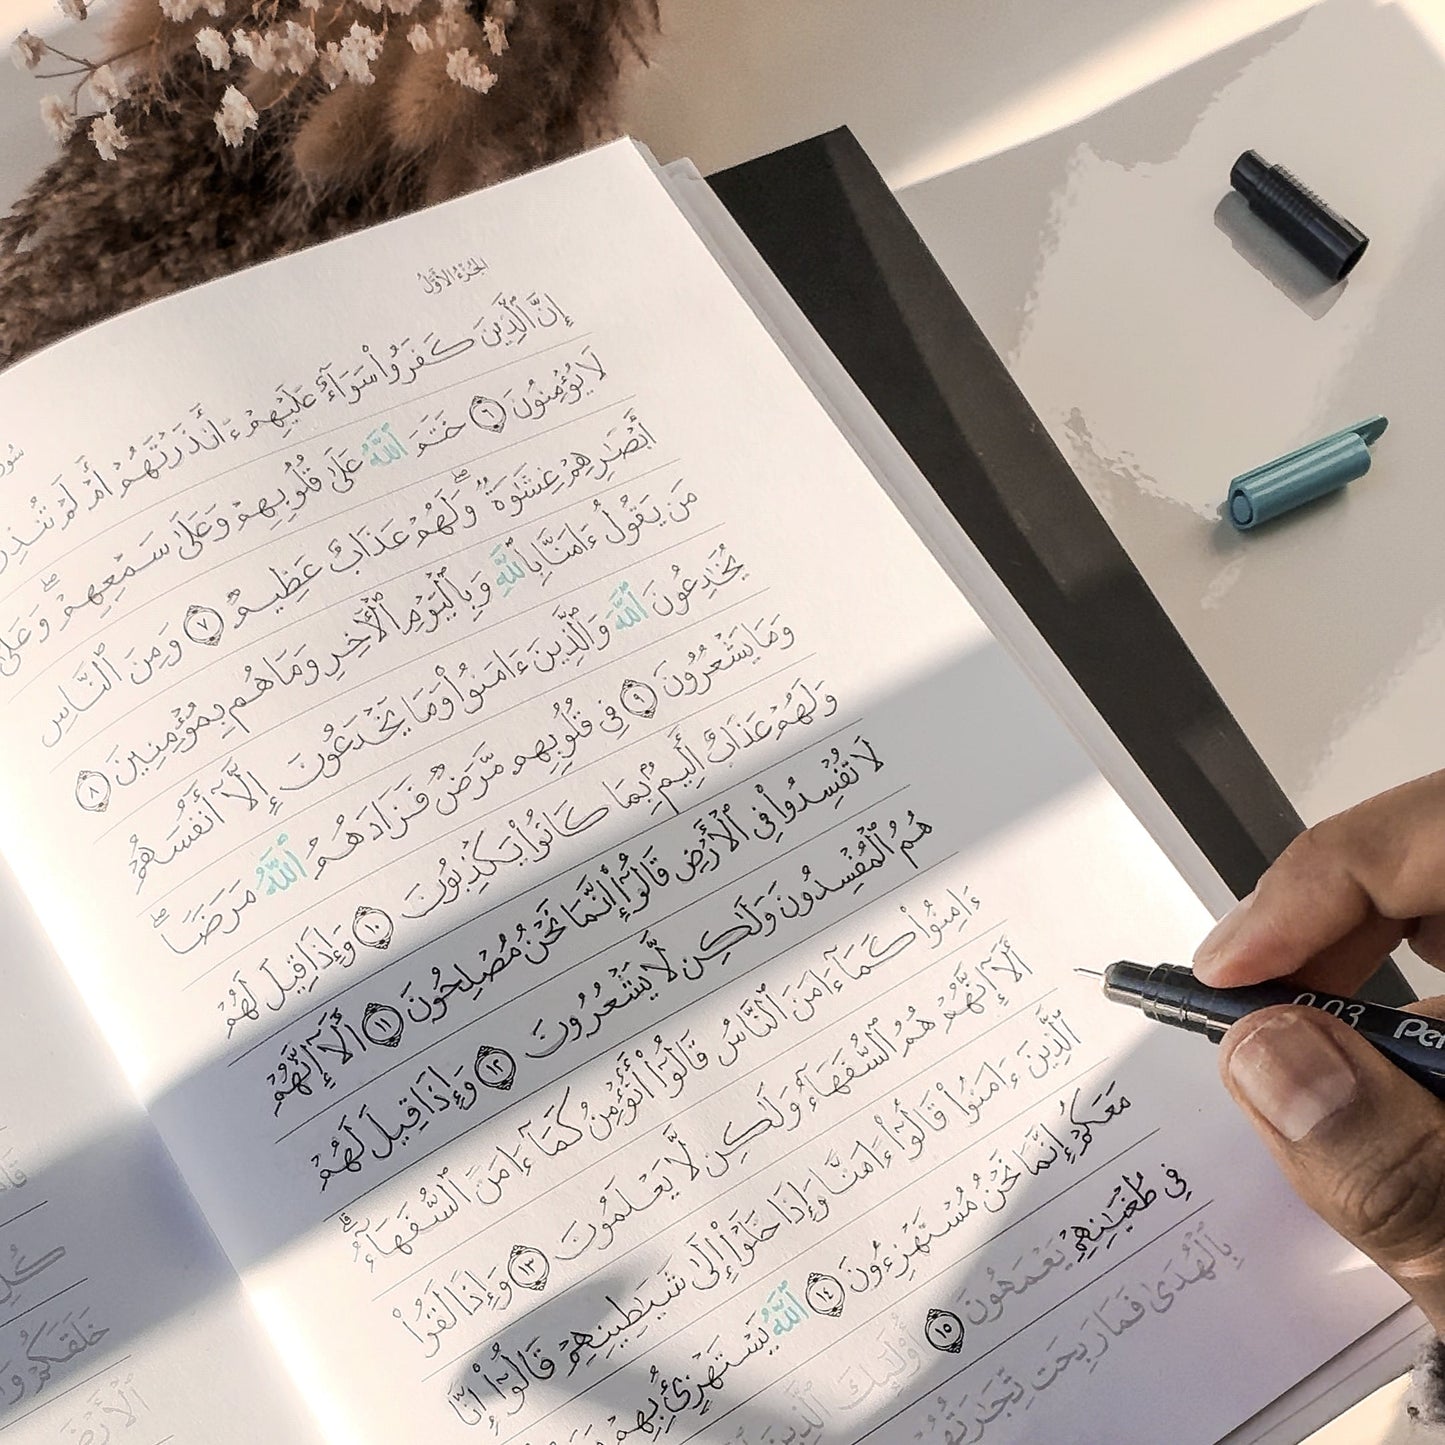 الجُزْءُ الأَوَّلُ
سُورَ
إِنَّ ٱلَّذِينَ كَفَرُوا۟ سَوَآءٌ عَلَيْهِمْ ءَأَنذَرْتَهُمْ أَمْ لَمْ تُنذِرْ
لَا يُؤْمِنُونَ ٦ خَتَمَ ٱللَّهُ عَلَىٰ قُلُوبِهِمْ وَعَلَىٰ سَمْعِهِمْ ۖ وَعَلَىٰ
أَبْصَـٰرِهِمْ غِشَـٰوَةٌ ۖ وَلَهُمْ عَذَابٌ عَظِيمٌ ٧ وَمِنَ ٱلنَّاسِ
مَن يَقُولُ ءَامَنَّا بِٱللَّهِ وَبِٱلْيَوْمِ ٱلْأَخِرِ وَمَا هُم بِمُؤْمِنِينَ ٨
يُخَـٰدِعُونَ ٱللَّهَ وَٱلَّذِينَ ءَامَنُوا۟ وَمَا يَخْدَعُونَ إِلَّآ أَنفُسَهُمْ
وَمَا يَشْعُرُونَ ٩ فِى قُلُوبِهِم مَّرَضٌ فَزَادَهُمُ ٱللَّهُ مَرَضًا ۖ
وَلَهُمْ عَذَابٌ أَلِيمٌۢ بِمَا كَانُوا۟ يَكْذِبُونَ ١٠ وَإِذَا قِيلَ لَهُمْ
لَا تُفْسِدُوا۟ فِى ٱلْأَرْضِ قَالُوٓا۟ إِنَّمَا نَحْنُ مُصْلِحُونَ ١١ أَلَآ إِنَّهُمْ
هُمُ ٱلْمُفْسِدُونَ وَلَـٰكِن لَّا يَشْعُرُونَ ١٢ وَإِذَا قِيلَ لَهُمْ
ءَامِنُوا۟ كَمَآ ءَامَنَ ٱلنَّاسُ قَالُوٓا۟ أَنُؤْمِنُ كَمَآ ءَامَنَ ٱلسُّفَهَآءُ ۗ
أَلَآ إِنَّهُمْ هُمُ ٱلسُّفَهَآءُ وَلَـٰكِن لَّا يَعْلَمُونَ ١٣ وَإِذَا لَقُوا۟
ٱلَّذِينَ ءَامَنُوا۟ قَالُوٓا۟ ءَامَنَّا وَإِذَا خَلَوْا۟ إِلَىٰ شَيَـٰطِينِهِمْ قَالُوٓا۟ إِنَّا
مَعَكُمْ إِنَّمَا نَحْنُ مُسْتَهْزِءُونَ ١٤ ٱللَّهُ يَسْتَهْزِئُ بِهِمْ
فِى طُغْيَـٰنِهِمْ يَعْمَهُونَ ١٥ أُو۟لَـٰٓئِكَ ٱلَّذِينَ
بِٱلْهُدَىٰ فَمَا رَبِحَت تِّجَـٰرَتُهُمْ
خَلَقَكُمْ
ٱلْأَرْضَ
0.03